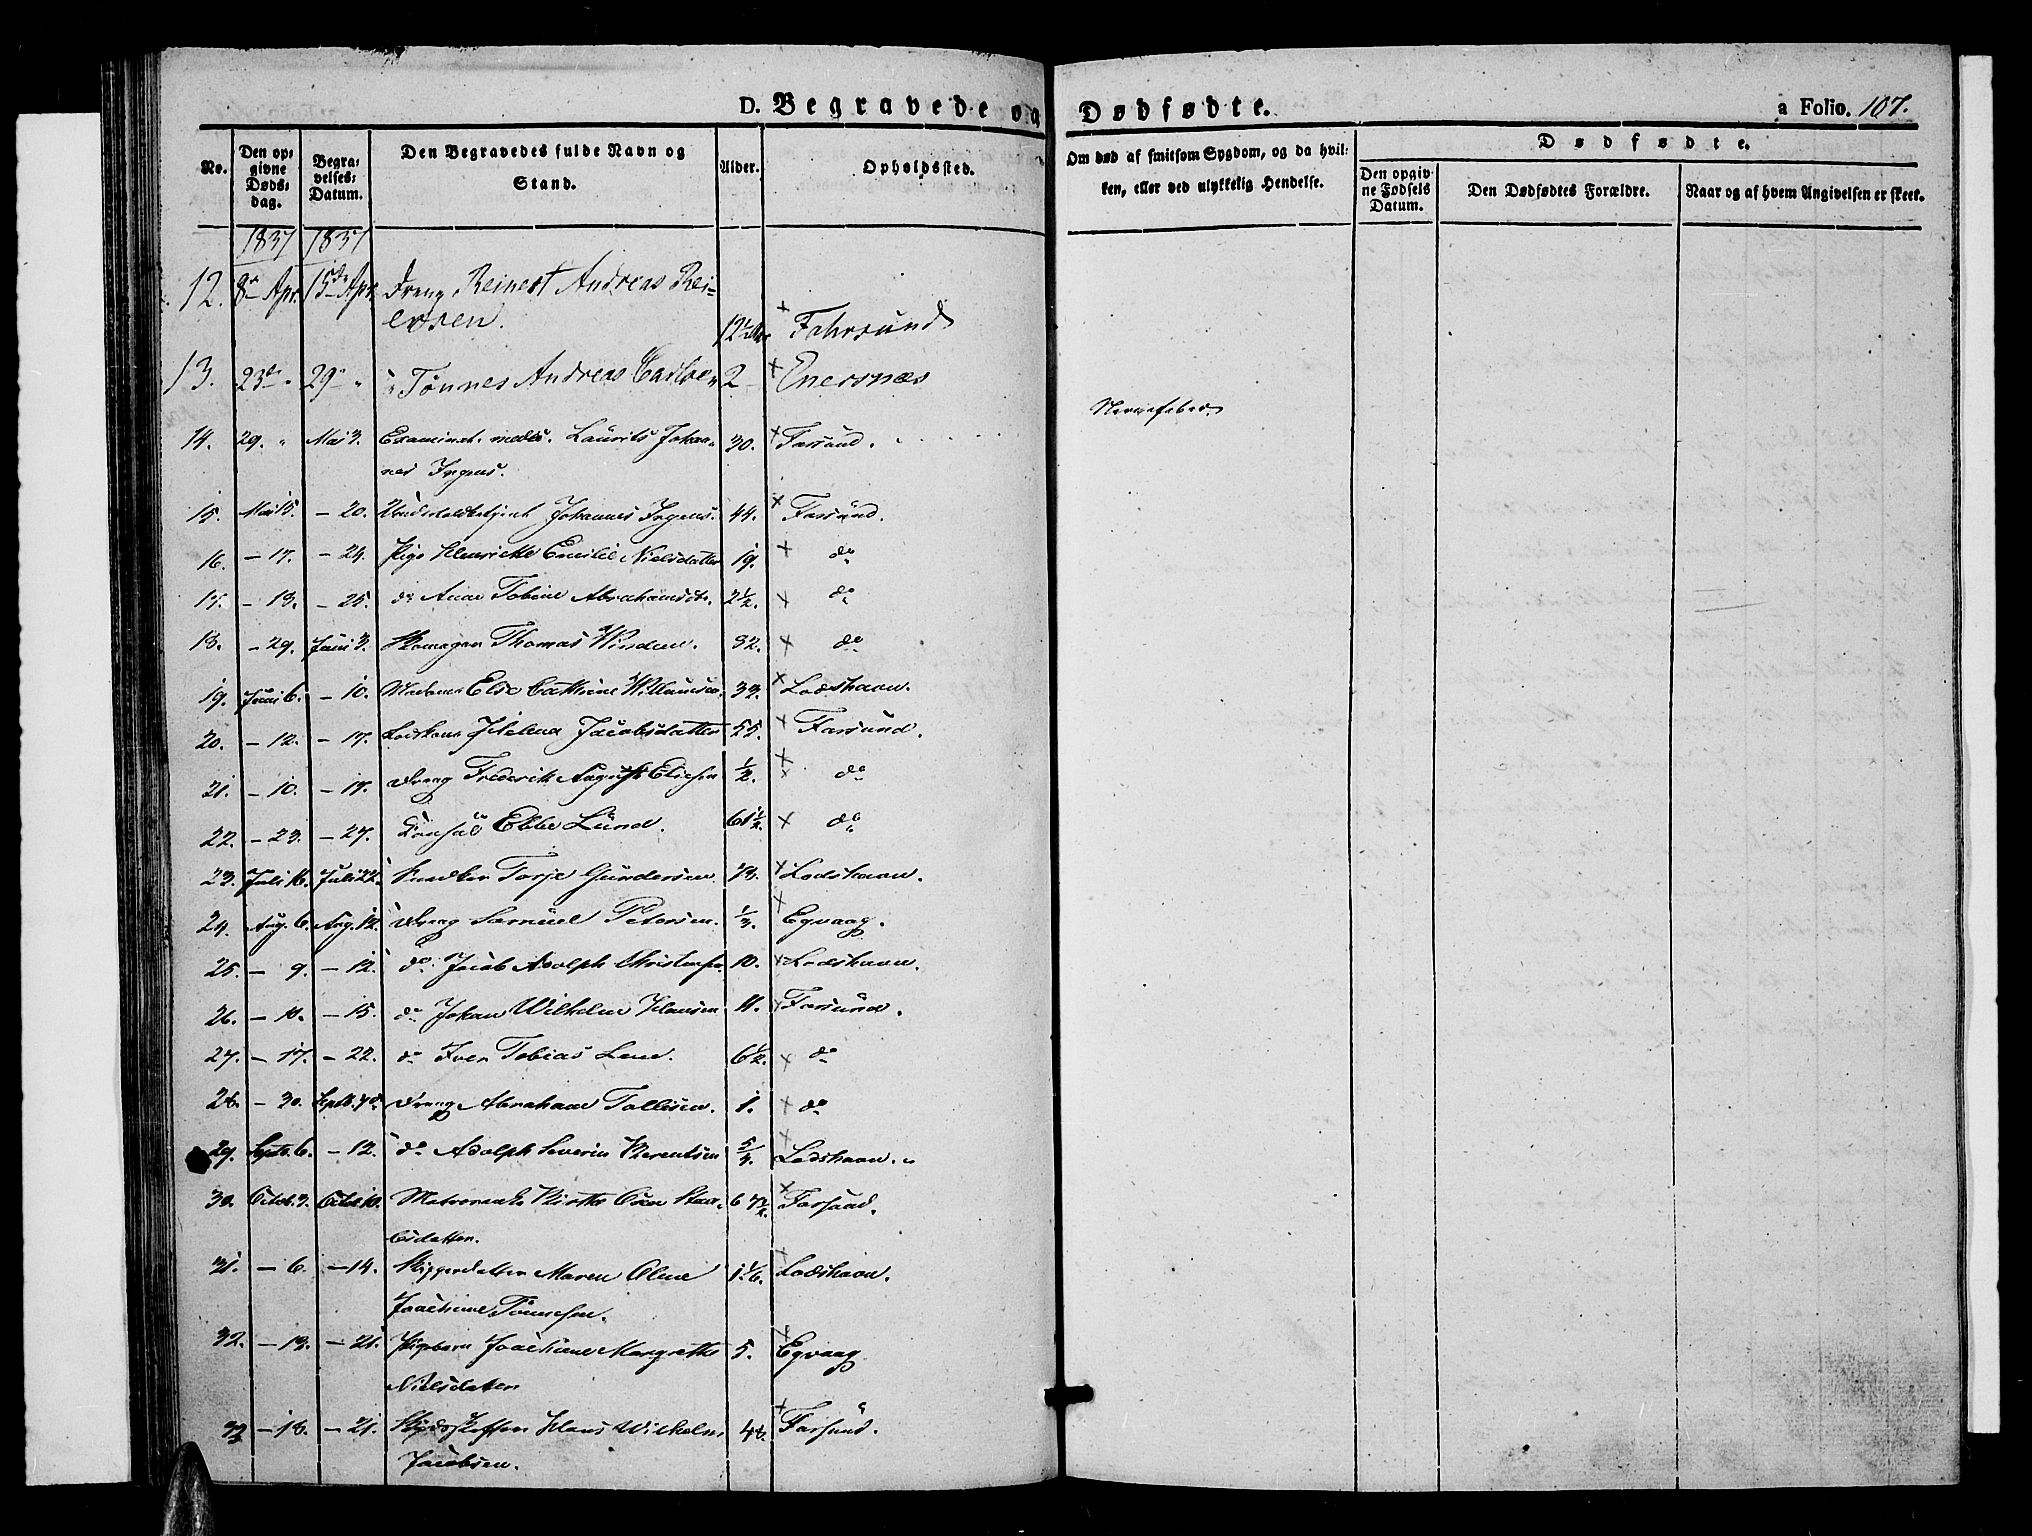 D. Begravede og Dødfødte.
a Folio. 107.
No.
Den op-
givne
Døds-
dag.
Begra-
velses-
Datum.
Den Begravedes fulde Navn og
Stand.
Alder.
Opholdssted.
Om død af smitsom Sygdom, og da hvil-
ken, eller ved ulykkelig Hendelse.
Dødfødte.
Den opgiv-
ne Fødsels
Datum.
Den Dødfødtes Forældre.
Naar og af hvem Angivelsen er skeet.
1837 1837
12. 8de Apr. 15de Apr. Dreng Reinert Andreas Rei-
ersen. 12½ Fahrsund
13. 23de " 29de " " Tønnes Andreas Carlsen 2 Enersnæs
Nervefeber.
14. 29. " Mai 3. Examinat. medic. Laurits Johan-
nes Irgens. 30. Farsund.
15. Mai 15. - 20. Johannes Irgens. 44. Farsund.
16. - 17. - 24. Pige Henriette Emilie Nielsdatter 19. do
17. - 13. - 25. do Ane Tobine Abrahamsdtr. 2½. do
18. - 29. Juni 3. Skomager Thomas 32. do
19. Juni 6. - 10. Madame Elise Cathrine Willumsen. 33. Lodshavn.
20. - 12. - 17. Helena Jacobsdatter 55. Farsund.
21. - 10. - 17. Dreng Frederik August Eliesen ½. do
22. - 23. - 27. Konsul Ebbe Lund. 61½. do
23. Juli 16. Juli 22. Torje Gundersen. 73. Lodshavn.
24. Aug. 6. Aug. 12. Dreng Samuel Petersen. ⅓. Egvaag.
25. - 9. - 12. do Jacob Adolph Christensen. 10. Lodshavn.
26. - 10. - 15. do Johan Wilhelm Hansen 11. Farsund.
27. - 17. - 22. do Iver Tobias Lene. 6½. do
28. - 30. Septb. 7de Dreng Abraham Tollisen. 1. do
29. Septb. 6. - 12. do Adolph Severin Berentsen 5/4. Lodshavn.
30. Octob. 3. Octob. 10. Birthe
datter. 67½. Farsund.
31. - 6. - 14. Skipperdatter Maren Oline
Joachime Tønnesen. 1 1/6. Lodshavn.
32. - 13. - 21. Pigebarn Joachime Margrethe
Nielsdatter 5. Egvaag
33 - 18. - 21. Hans Wilhelm
Jacobsen. 48. Farsund.